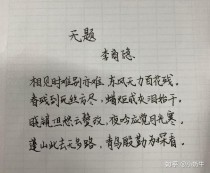 无题
李商隐
相见时难别亦难,东风无力百花残。
春蚕到死丝方尽,蜡炬成灰泪始干。
晓镜但愁云鬓改,夜吟应觉月光寒。
蓬山此去无多路,青鸟殷勤为探看。